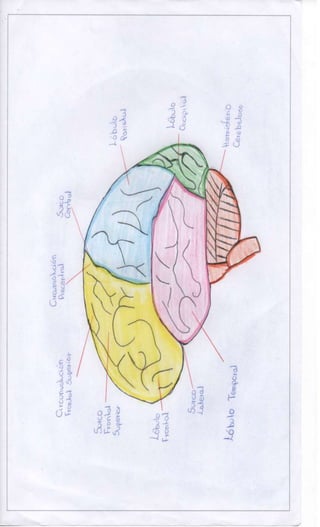 Circunvalación
Frontal Superior
Circunvalación
Precentral
Surco
Central
Lóbulo
Parietal
Lóbulo
Occipital
Hemisferio
Cerebeloso
Surco
Frontal
Superior
Lóbulo
Frontal
Surco
Lateral
Lóbulo Temporal